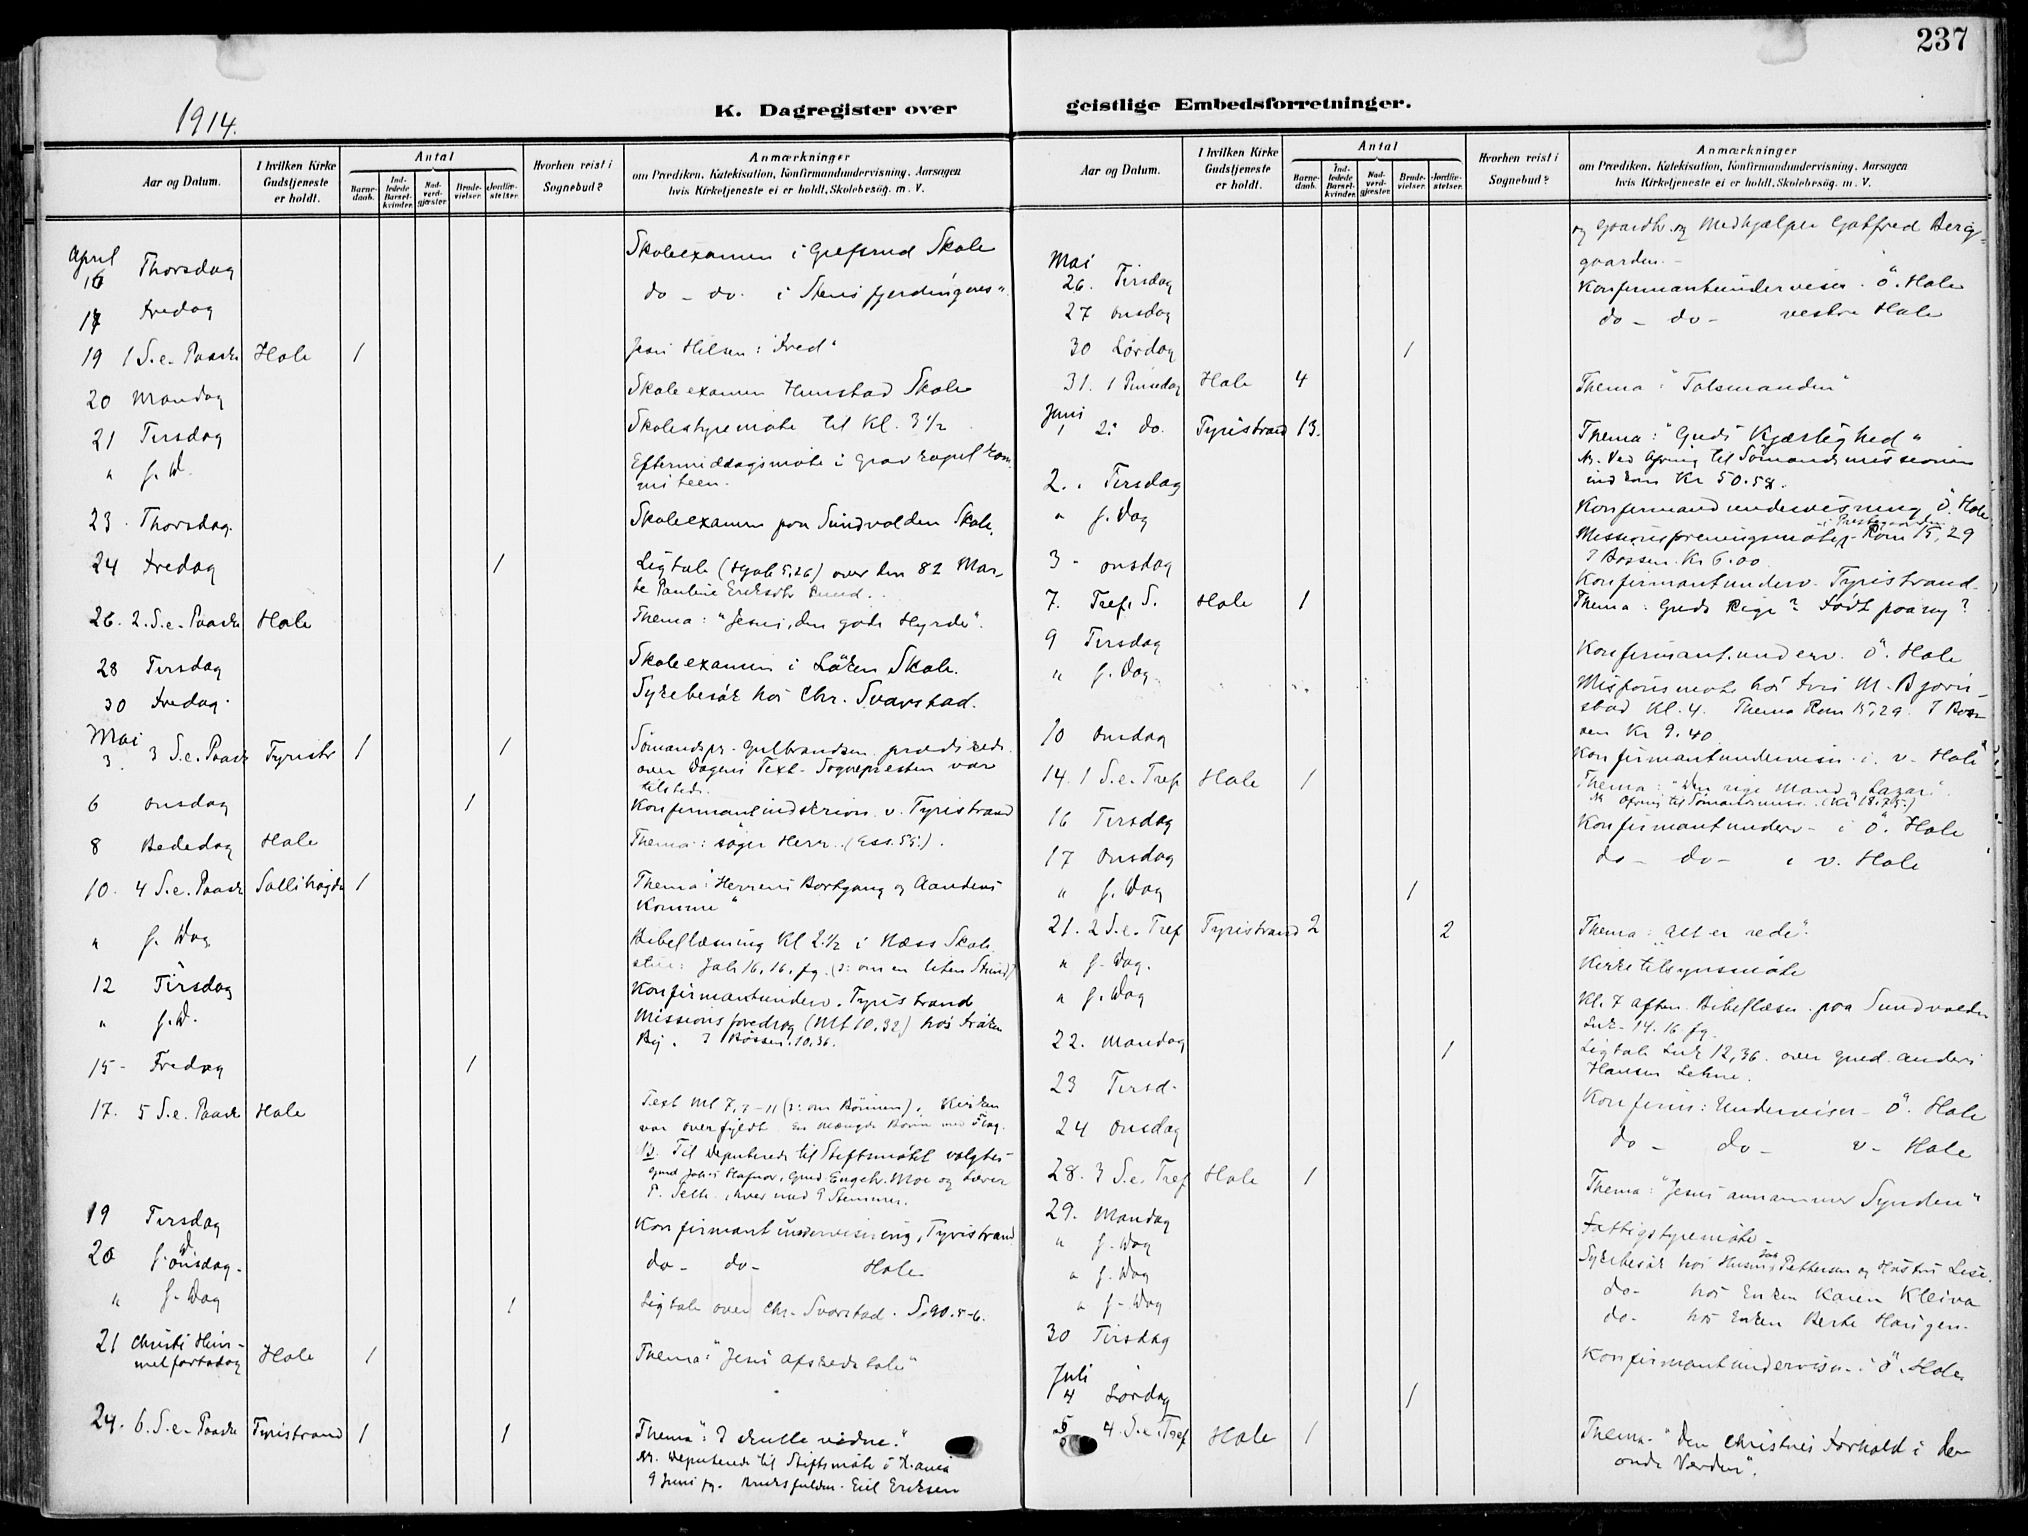 237
1914.
K. Dagregister over
geistlige Embedsforretninger.
Aar og Datum.
I hvilken Kirke Gudstjeneste er holdt.
Antal
Barne-daab.
Ind-ledede Barsel-kvinder.
Nad-verd-gjæster.
Brude-vielser.
Jordfæ-stelser.
Hvorhen reist i Sognebud?
Anmærkninger
om Prædiken, Katekisation, Konfirmandundervisning, Aarsagen
hvis Kirketjeneste ei er holdt, Skolebesøg. m. V.
April
16 Thorsdag Skoleexamen i Gjefsrud Skole
17 Fredag do - do. i Stensfjerdingens "
19 1 S. e. Paaske Hole 1 Jesu Hilsen: "Fred"
20 Mandag Skoleexamen Hunstad Skole
21 Tirsdag Skolestyremøte til Kl. 3 1/2
" s. D. Eftermiddagsmøte i Gravkapelkom-
miteen.
23. Thorsdag. Skoleexamen paa Sundvolden Skole.
24 Fredag 1 Ligtale (Hjob 5,26) over den 82 Mar-
te Pauline Eriksdtr Rund.
26. 2. S. e. Paaske Hole Thema: "Jesus, den gode Hyrde".
28 Tirsdag Skoleexamen i Löken Skole.
30 Fredag. Sykebesök hos Chr. Svarstad.
Mai
3. 3 S. e. Paaske Tyristr 1 1 Sømandspr. Gulbrandsen prædikede
over Dagens Text. Sognepresten var
tilstede.
6 onsdag 1 Konfirmantindskrivn. v. Tyristrand
8 Bededag Hole Thema: søger Herr. (Ess. 55.).
10. 4 S. e. Paaske Sollihøgda 1 Thema: "Herrens Bortgang og Aandens
Komme"
" s. Dag Bibellæsning Kl 2 1/2 i Næss Skole
stue: Joh 16, 16, fg. (ɔ: om en liten Stund)
12 Tirsdag Konfirmantunderv. Tyristrand
" s. D. Missionsforedrag (Mt 10.32) hos Frøken
Bij. I Bøssen 10.36.
15 - Fredag 1
17. 5 S. e. Paaske Hole Text Mt 7, 7-11 (ɔ: om Bönnen). Kirken
var overfyldt. En Mængde Børn med Flag.
NB. Til Deputerede til Stiftsmötet valgtes
P. Selte, hver med 9 Stemmer.
19 Tirsdag Konfirmantundervisning, Tyristrand
20 onsdag - do - do - Hole
" s. Dag 1 Ligtale over Chr. Svarstad. S. 90. 5-6.
21 Christi Him-
melfartsdag Hole 1 Thema: "Jesu Afskedstale"
24. 6. S. e. Paaske Tyristrand 1 1 Thema: "I skulle vidne."
NB. Deputerede til Stiftsmøte i K.ania
9 Juni fg. Eriksen
Aar og Datum.
I hvilken Kirke Gudstjeneste er holdt.
Antal
Barne-daab.
Ind-ledede Barsel-kvinder.
Nad-verd-gjæster.
Brude-vielser.
Jordfæ-stelser.
Hvorhen reist i Sognebud?
Anmærkninger
om Prædiken, Katekisation, Konfirmandundervisning, Aarsagen
hvis Kirketjeneste ei er holdt, Skolebesøg. m. V.
og Gaardbr. og Medhjælper Gotfred Berg-
gaarden. -
Mai
26. Tirsdag Konfirmantundervisn. Ö. Hole
27 onsdag do - do - vestre Hole
30 Lørdag 1
31. 1 Pinsedag Hole 4 Thema: "Talsmanden"
Juni
1 2. do. Tyristrand 13. Thema: "Guds Kjærlighed"
NB. Ved Ofring til Sømandsmissionen
indkom Kr 50.58.
2. Tirsdag Konfirmandundervisning, Ö. Hole
" s. Dag Missionsforeningsmøte i Prestegaarden. Rom 15, 29
I Bøssen. Kr 6.00
3 - onsdag Konfirmantunderv. Tyristrand.
7. Tref. S. Hole 1 Thema: Guds Rige? Født paany?
9 Tirsdag Konfirmant.underv. Ö. Hole
" s. Dag. Missionsmøte hos Frui M. Bjørn-
stad Kl. 4. Thema Rom 15,29. I Bøs-
sen Kr 9.40
10 onsdag Konfirmantundervisn. i v. Hole
14. 1 S. e. Tref Hole 1 Thema: "Den rige Mand og Lazar".
NB Ofring til Sømandsmiss. (Kr 18.75.)
16 Tirsdag Konfirmantunderv - i Ö. Hole
17 onsdag do - do - i v. Hole
" s. Dag 1
21. 2 S. e. Tref Tyristrand 2 2 Thema: "Alt er rede".
" s. Dag. Kirketilsynsmøte
" s. Dag Kl. 7 aften. Bibellæsn. paa Sundvolden
Luk. 14. 16 fg.
22. Mandag 1 Ligtale Luk 12,36. over gmd. Anders
Hansen Lehne.
23 Tirsd - Konfirm: Undervisn - Ö. Hole
24 Onsdag do - do - v - Hole
28. 3 S. e. Tref Hole 1 Thema: "Jesus annammer Syndere"
29. Mandag Fattigstyremøte -
" s. Dag Sykebesök hos Husmd Joh Pettersen og Hustru Lise.
" s. Dag do - hos Enken Karen Kleiva
" s. Dag do - hos Enken Berte Haugen.
30 Tirsdag Konfirmantundervisn. i Ö. Hole
Juli
4 Lørdag 1
5 4 S. e. Tref Hole 1 Thema - "Den Christnes Forhold i den
onde Verden".